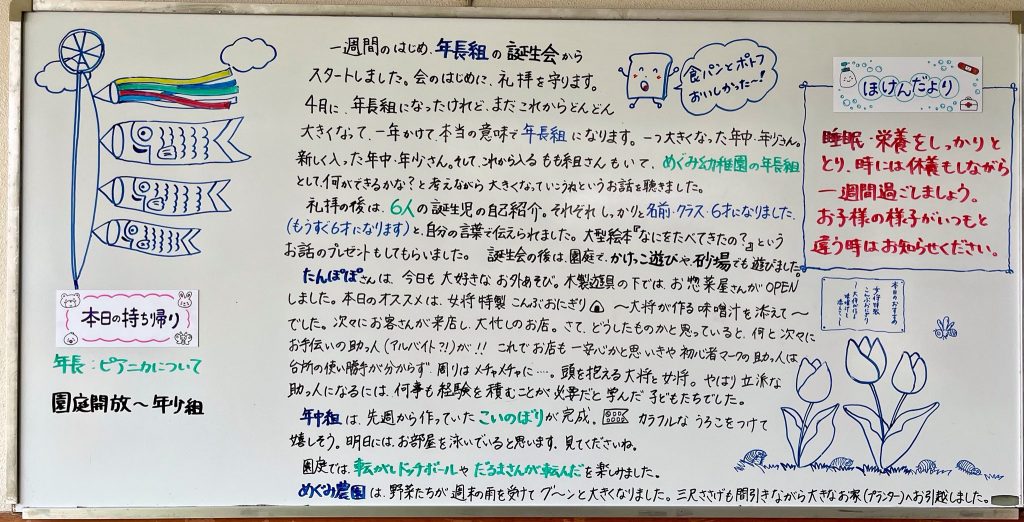 一週間のはじめ、年長組の誕生会から
スタートしました。会のはじめに、礼拝を守ります。
4月に、年長組になったけれど、まだこれからどんどん
大きくなって、一年かけて本当の意味で年長組になります。一つ大きくなった年中・年少さん。
新しく入った年中・年少さん。そして、これから入るもも組さんもいて、めぐみ幼稚園の年長組
として、何ができるかな？と考えながら大きくなっていこうねというお話を聴きました。
礼拝の後は、6人の誕生児の自己紹介。それぞれしっかりと名前・クラス・6才になりました、
(もうすぐ6才になります)と、自分の言葉で伝えられました。大型絵本『なにをたべてきたの?』という
お話のプレゼントもしてもらいました。誕生会の後は、園庭で、かけっこ遊びや砂場でも遊びました。
たんぽぽさんは、今日も大好きなお外あそび。木製遊具の下では、お惣菜屋さんがOPEN
しました。本日のオススメは、女将特製 こんぶおにぎり 〜大将が作る味噌汁を添えて〜
でした。次々にお客さんが来店し、大忙しのお店。さて、どうしたものかと思っていると、何と次々に
お手伝いの助っ人(アルバイト?!)が!! これでお店も一安心かと思いきや 初心者マークの助っ人は
台所の使い勝手が分からず、周りはメチャメチャに…。頭を抱える大将と女将。やはり立派な
助っ人になるには、何事も経験を積むことが必要だと学んだ子どもたちでした。
年中組は、先週から作っていたこいのぼりが完成。カラフルなうろこをつけて
嬉しそう。明日には、お部屋を泳いでいると思います。見てくださいね。
園庭では、転がしドッチボールやだるまさんが転んだを楽しみました。
めぐみ農園は、野菜たちが週末の雨を受けてグ〜ンと大きくなりました。三尺ささげも間引きながら大きなお家(プランター)へお引越しました。
食パンとポトフ
おいしかったー!
ほけんだより
睡眠・栄養をしっかりと
とり、時には休養もしながら
一週間過ごしましょう。
お子様の様子がいつもと
違う時はお知らせください。
本日のおすすめ
女将特製
こんぶおにぎり
〜大将が作る
味噌汁を
添えて〜
本日の持ち帰り
年長：ピアニカについて
園庭開放〜年少組